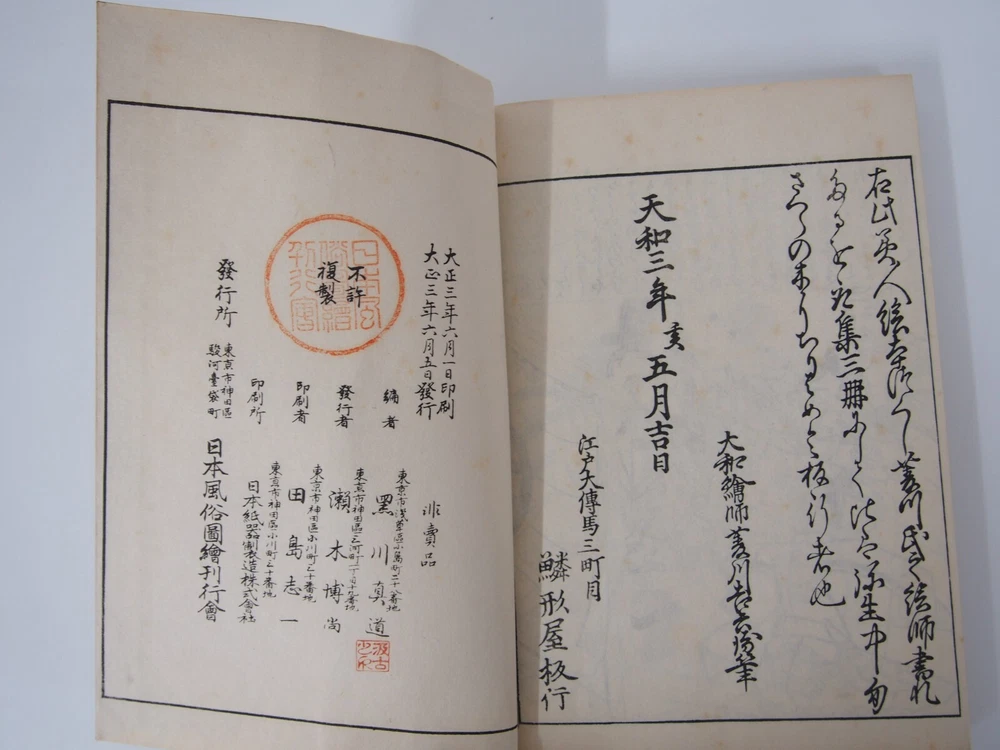 右此美人絵本 菱川氏 絵師
集三冊 弥生中旬
さくらの木 板行者也
大和繪師 菱川吉兵衛筆
天和三年 癸亥 五月吉日
江戸大傳馬三町目
鱗形屋板行
大正三年六月一日印刷
大正三年六月五日發行
非賣品
不許
複製
日本風
俗圖繪
刊行會
編者
東京市淺草區小島町二十八番地
黒川真道
發行者
東京市神田區三河町一丁目十九番地
瀨木博尚
印刷者
東京市神田區小川町三十番地
田島志一
印刷所
東京市神田區小川町三十番地
日本紙器製造株式會社
發行所
東京市神田區
駿河臺袋町
日本風俗圖繪刊行會